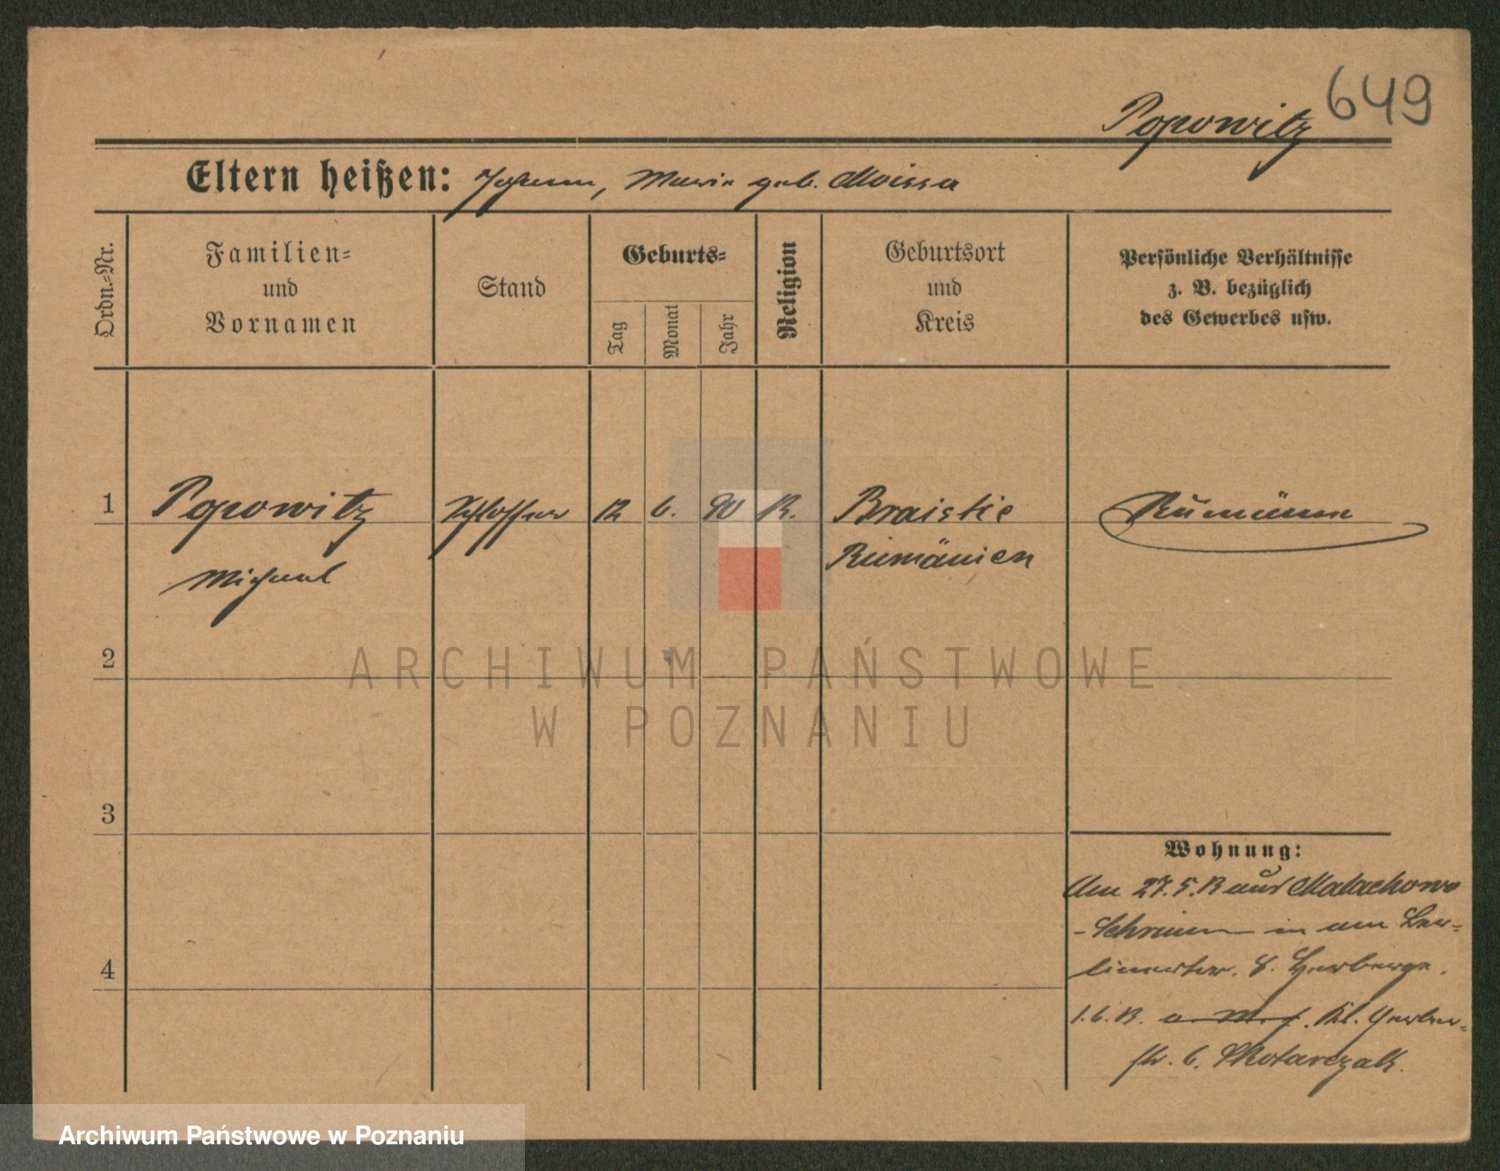 649
Popowitz
Eltern heißen: Johann, Marie geb. Moissa
Ordn.-Nr.
Familien-
und
Vornamen
Stand
Geburts-
Tag
Monat
Jahr
Religion
Geburtsort
und
Kreis
Persönliche Verhältnisse
z. B. bezüglich
des Gewerbes usw.
1 Popowitz Schlosser 12 6. 90 K. Braistie Rumäne
Michael Rumänien
2
ARCHIWUM PAŃSTWOWE
W POZNANIU
3
Wohnung:
Am 27.5.12 aus Malachowo
-Schrimm in am Ber-
linertor. 8. Herberge.
4
1.6.12. Kl. Gerber-
str. 6. Skotarczak.
Archiwum Państwowe w Poznaniu